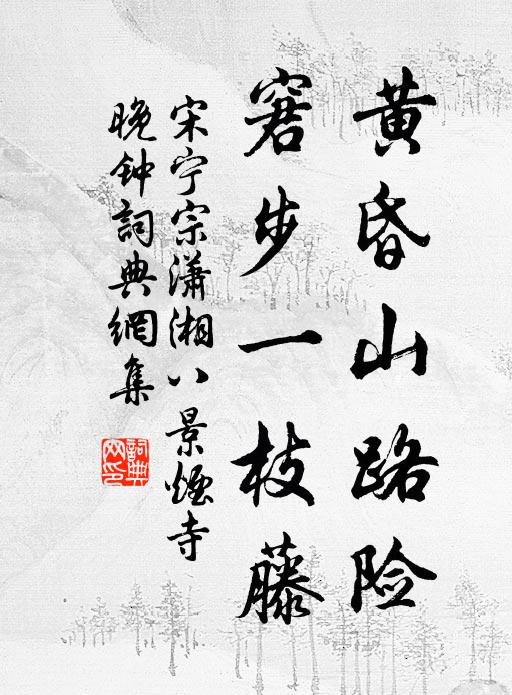 黄昏山路险
窘步一枝藤
宋宁宗潇湘八景煙寺
晚钟詞典網集
詞典
网印